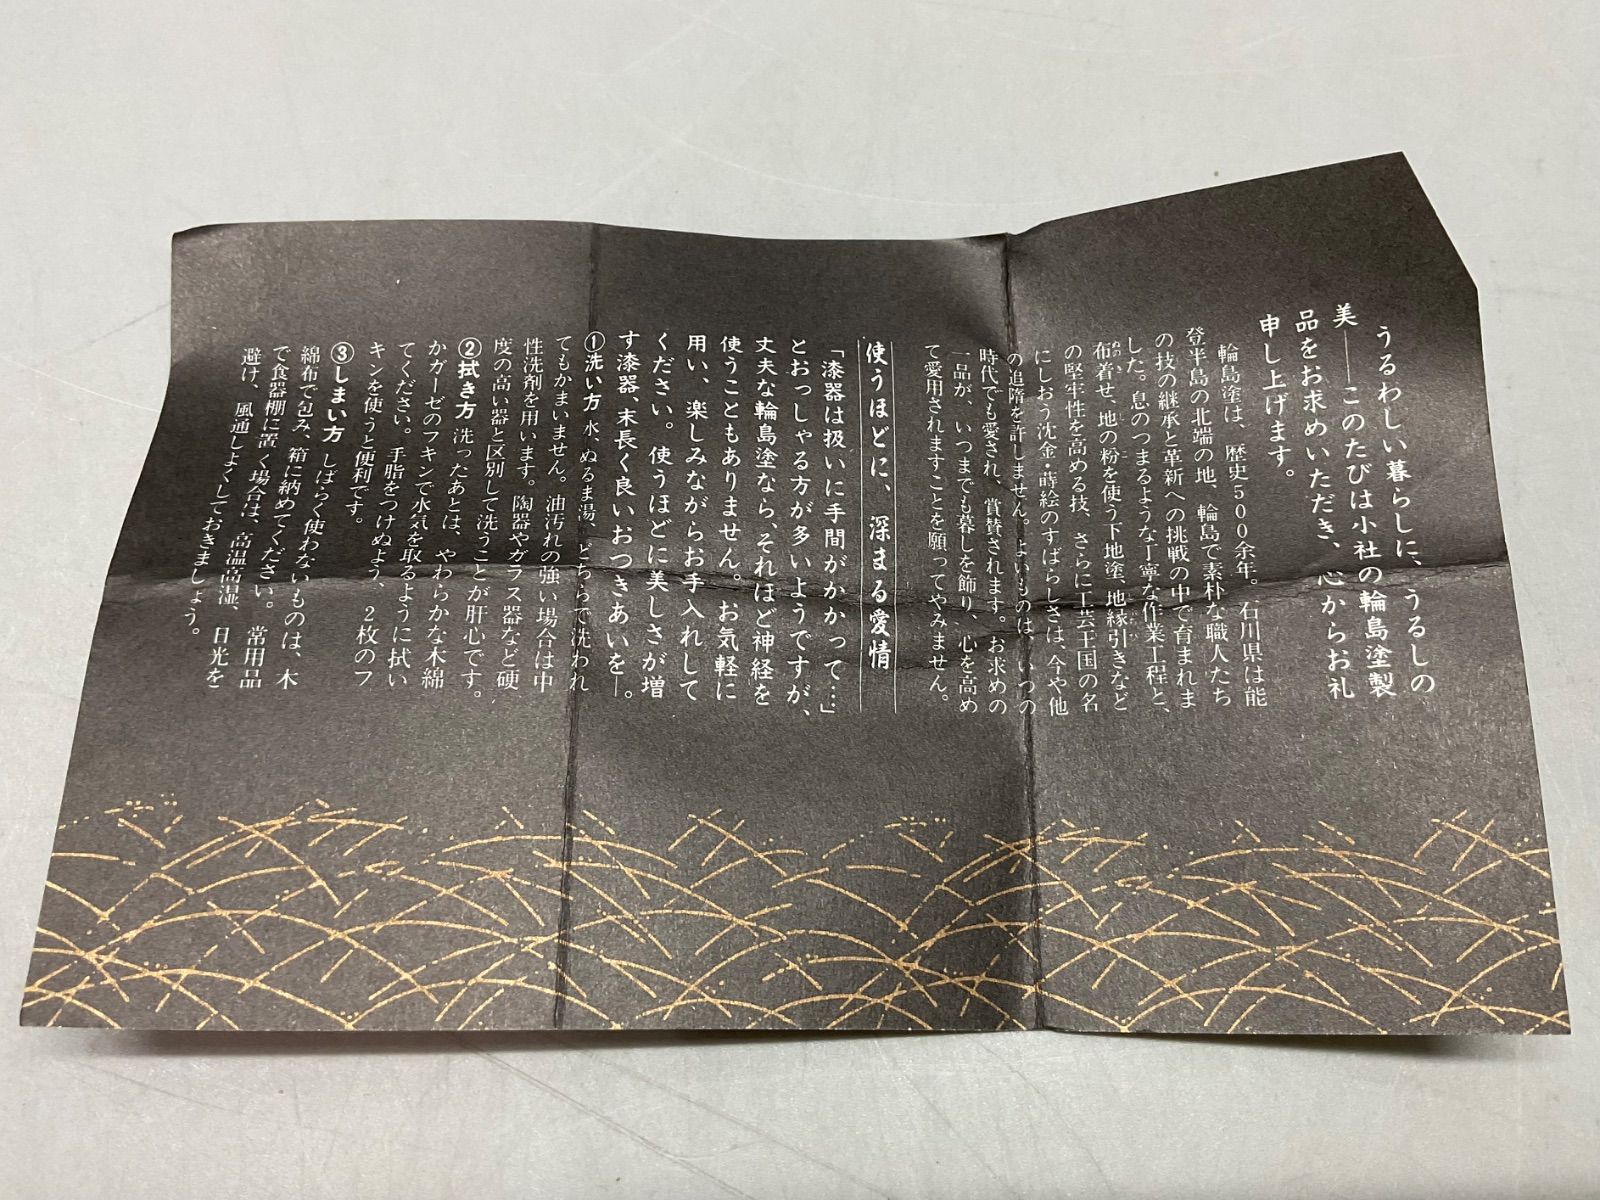 うるわしい暮らしに、うるしの
美――このたびは小社の輪島塗製
品をお求めいただき、心からお礼
申し上げます。
輪島塗は、歴史500余年。石川県は能
登半島の北端の地、輪島で素朴な職人たち
の技の継承と革新への挑戦の中で育まれま
した。息のつまるような丁寧な作業工程と、
布着せ、地の粉を使う下地塗、地縁引きなど
の堅牢性を高める技、さらに工芸王国の名
にしおう沈金・蒔絵のすばらしさは、今や他
の追隋を許しません。よいものは、いつの
時代でも愛され、賞賛されます。お求めの
一品が、いつまでも暮しを飾り、心を高め
て愛用されますことを願ってやみません。
使うほどに、深まる愛情
「漆器は扱いに手間がかかって…」
とおっしゃる方が多いようですが、
丈夫な輪島塗なら、それほど神経を
使うこともありません。お気軽に
用い、楽しみながらお手入れして
ください。使うほどに美しさが増
す漆器、末長く良いおつきあいを―。
①洗い方 水、ぬるま湯、どちらで洗われ
てもかまいません。油汚れの強い場合は中
性洗剤を用います。陶器やガラス器など硬
度の高い器と区別して洗うことが肝心です。
②拭き方 洗ったあとは、やわらかな木綿
かガーゼのフキンで水気を取るように拭い
てください。手脂をつけぬよう、2枚のフ
キンを使うと便利です。
③しまい方 しばらく使わないものは、木
綿布で包み、箱に納めてください。常用品
で食器棚に置く場合は、高温高湿、日光を
避け、風通しよくしておきましょう。